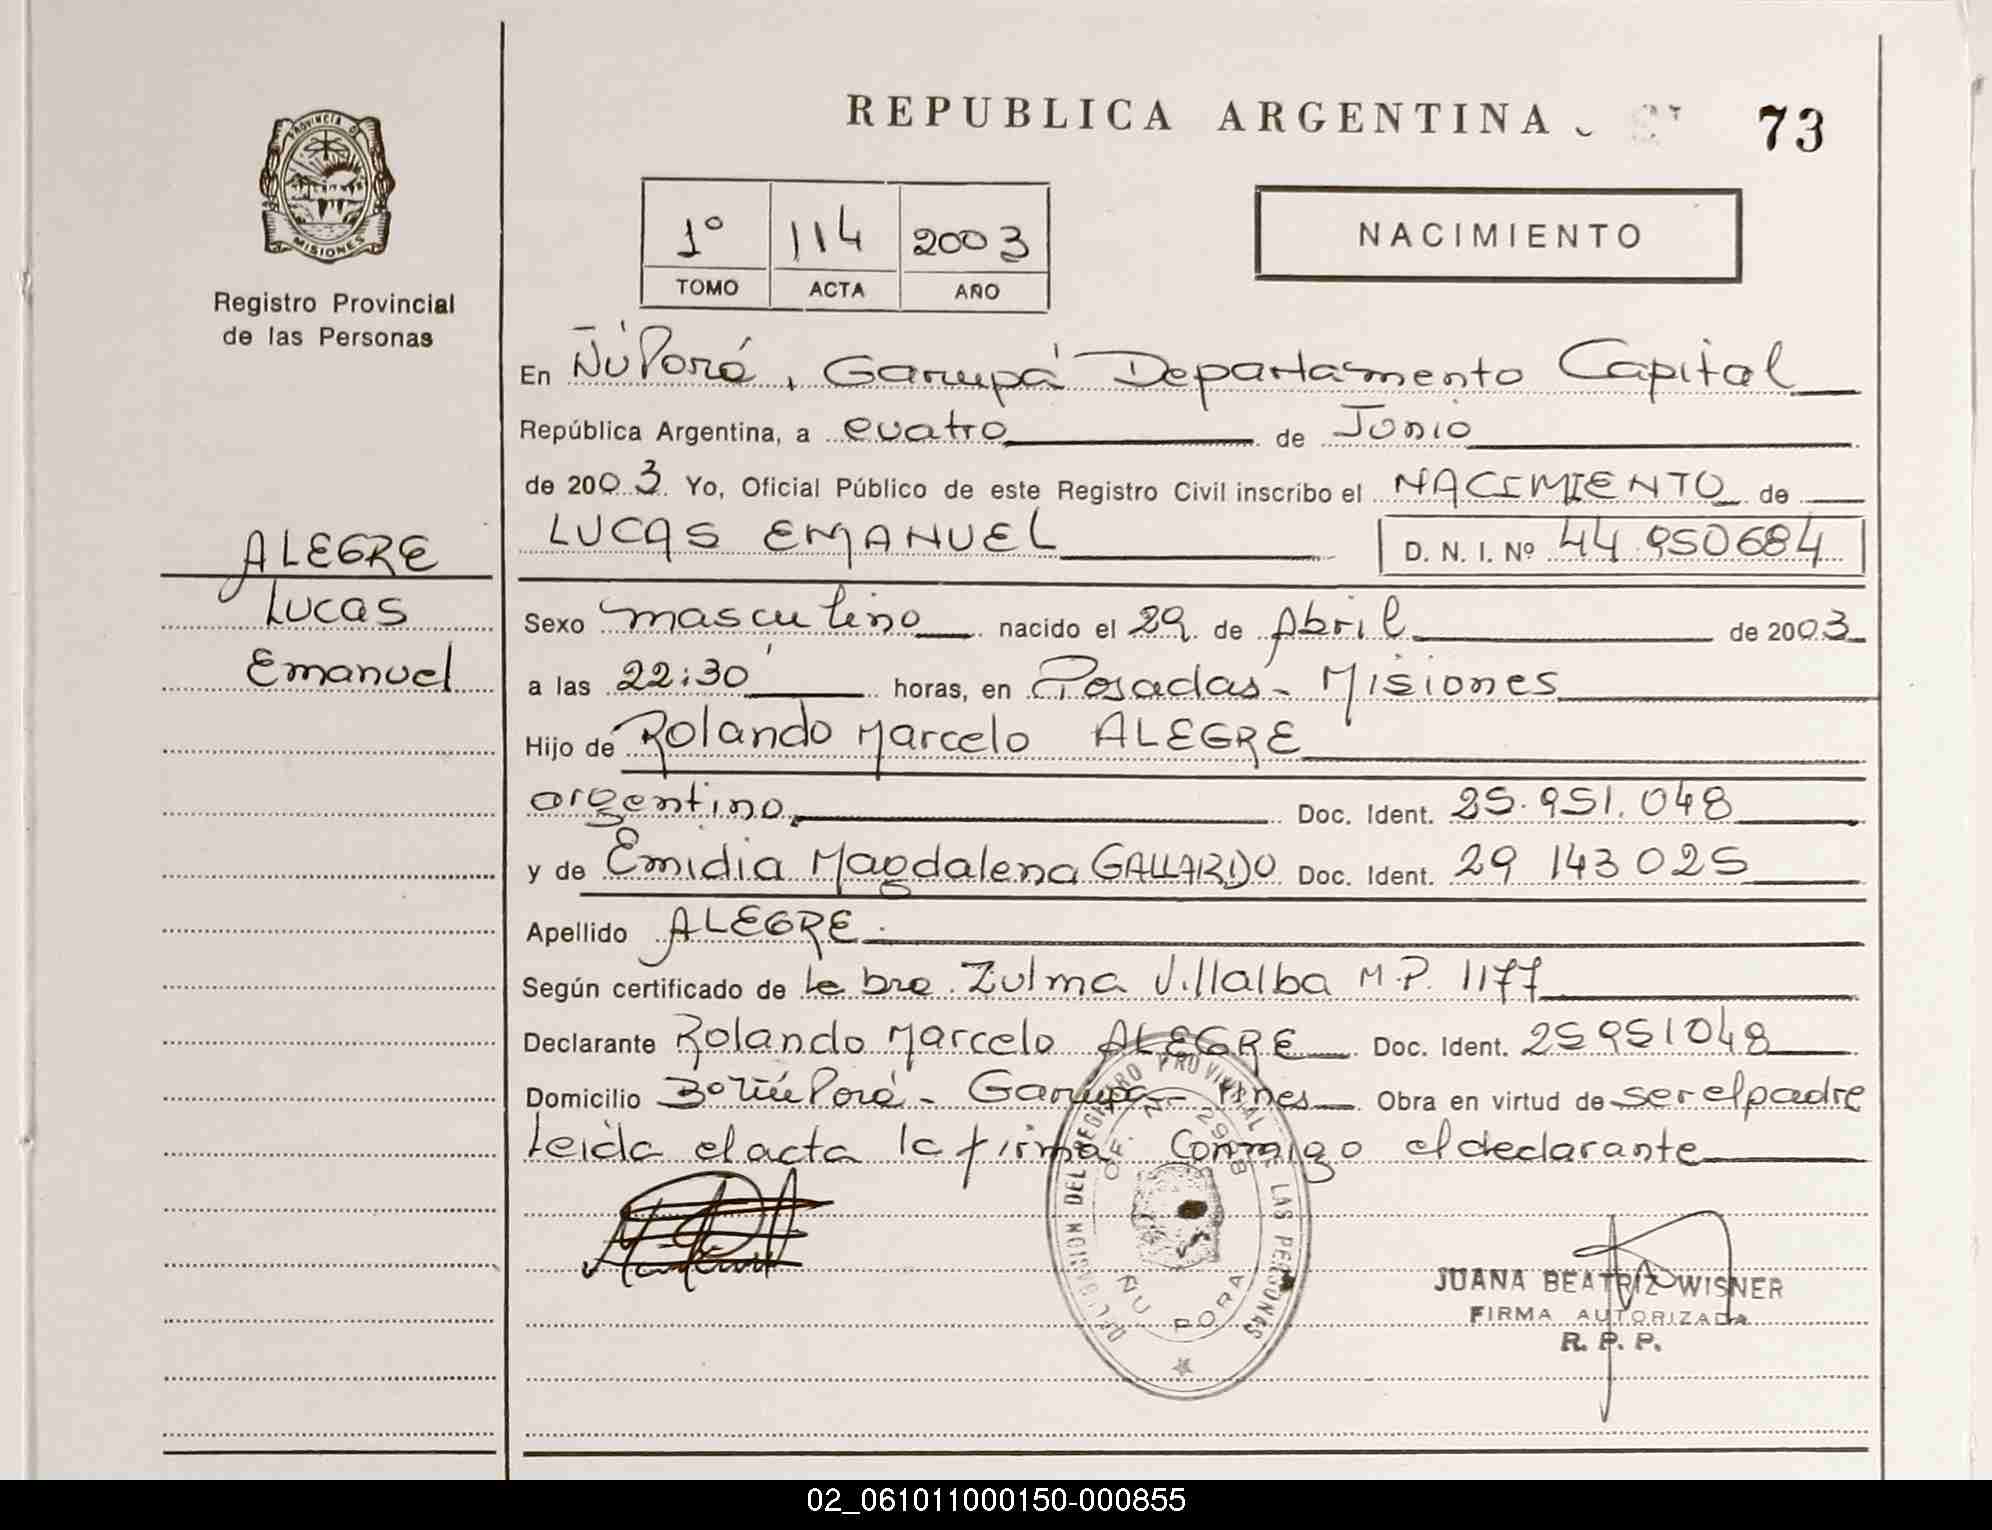 REPUBLICA ARGENTINA
73
PROVINCIA DE
MISIONES
Registro Provincial
de las Personas
1º 114 2003
TOMO ACTA AÑO
NACIMIENTO
En Ñu Porá, Garupá Departamento Capital
República Argentina, a cuatro de Junio
de 2003. Yo, Oficial Público de este Registro Civil inscribo el NACIMIENTO de
LUCAS EMANUEL D. N. I. Nº 44.950684
ALEGRE
Lucas
Emanuel
Sexo masculino nacido el 29 de Abril de 2003
a las 22:30 horas, en Posadas - Misiones
Hijo de Rolando Marcelo ALEGRE
argentino Doc. Ident. 25.951.048
y de Emidia Magdalena GALLARDO Doc. Ident. 29 143 025
Apellido ALEGRE
Según certificado de la Zulma Villalba M.P. 1177
Declarante Rolando Marcelo ALEGRE Doc. Ident. 25951048
Domicilio Bº Ñu Porá - Garupá - Mnes Obra en virtud de ser el padre
Leida el acta la firma conmigo el declarante
DELEGACION DEL REGISTRO PROVINCIAL DE LAS PERSONAS
ÑU PORA
JUANA BEATRIZ WISNER
FIRMA AUTORIZADA
R. P. P.
02_061011000150-000855